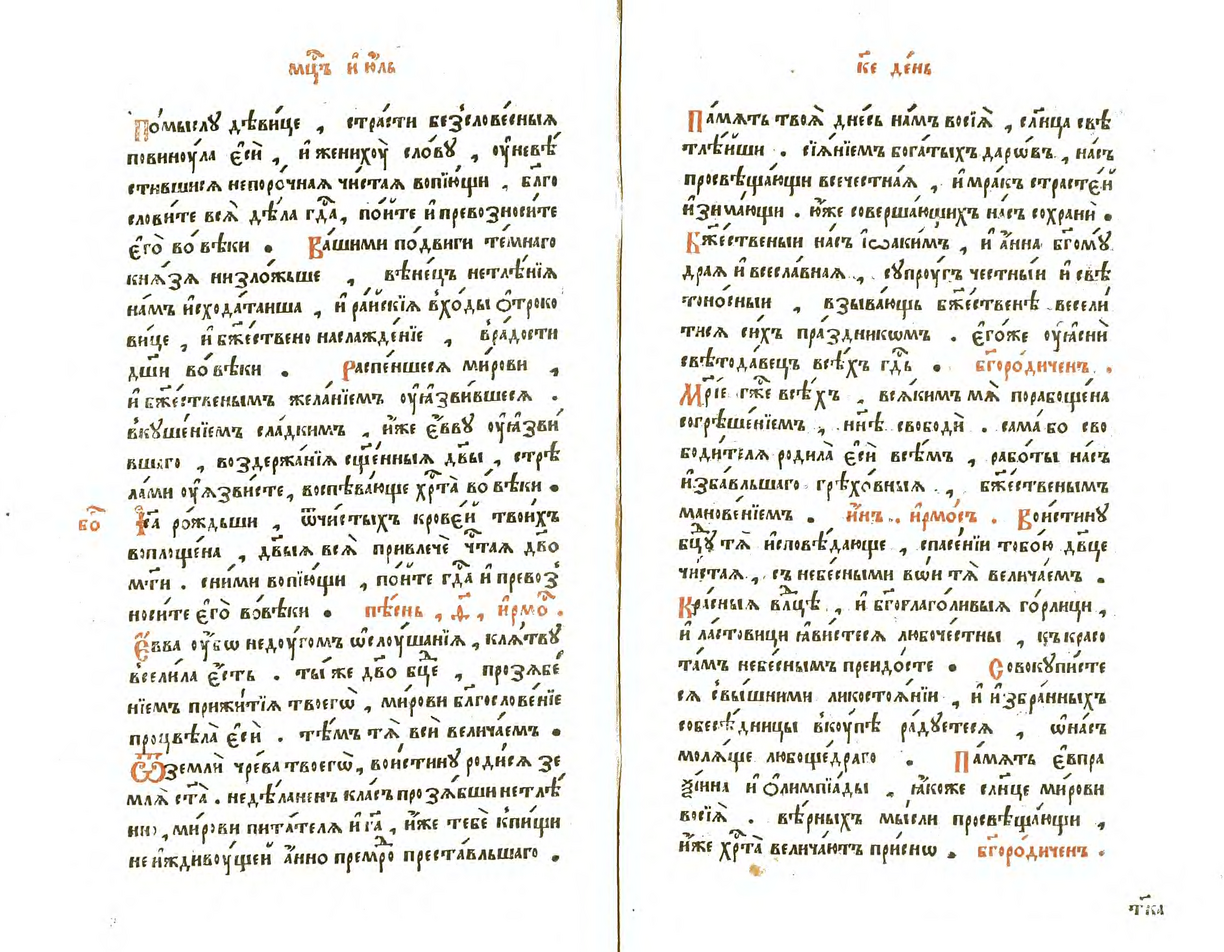 мцⷭ҇ъ і҆ ю҆ль
По́мыслꙋ дѣ́вице , стра́сти без̾слове́сныѧ
повинꙋ́ла є҆сѝ , и҆ женихꙋ̀ сло́вꙋ , ᲂу҆невѣ́
стившисѧ непоро́чнаѧ чи́стаѧ вопїю́щи , бл҃го
слови́те всѧ̀ дѣ́ла гдⷭ҇а , по́йте и҆ превозноси́те
є҆го̀ во́ вѣки . Ва́шими по́двиги те́мнаго
кнѧ́зѧ низло́жьше , вѣне́цъ нетлѣ́нїѧ
на́мъ и҆схода́таиша , и҆ ра́йскїѧ вхо́ды ѻ҆троко
ви́це , и҆ бж҃е́ствено наслажде́нїе , вра́дости
дш҃и во́ вѣки . Распе́ншесѧ ми́рови ,
и҆ бж҃е́ственымъ жела́нїемъ ᲂу҆ꙗ҆зви́вшесѧ .
вкꙋше́нїемъ сла́дкимъ , и҆́же є҆́ввꙋ ᲂу҆ꙗ҆зви́
вшаго , воздержа́нїѧ сщ҃е́нныѧ дв҃ы , стрѣ
ла́ми ᲂу҆ѧ́звисте , воспѣва́юще хрⷭ҇та̀ во́ вѣки .
бо́ І҆с҃а ро́ждьши , ѿчи́стыхъ крове́й твои́хъ
воплоще́на , дв҃ыѧ всѧ̀ привлечѐ чⷭ҇таѧ дв҃о
м҃ти . сни́ми вопїю́щи , по́йте гдⷭ҇а и҆ превоз̾
носи́те є҆го̀ во́вѣки . пѣ́снь , ѳ҃ , і҆рмо́ .
Є҆́вва ᲂу҆́бѡ недꙋ́гомъ ѡ҆слꙋ́шанїѧ , клѧ́твꙋ
всели́ла є҆́сть . ты́ же дв҃о бцⷣе , прозѧбе́
нїемъ прижи́тїѧ твоегѡ̀ , ми́рови бл҃гослове́нїе
процвѣла̀ є҆сѝ . тѣ́мъ тѧ̀ всѝ велича́емъ .
Ѿземлѝ чре́ва твоегѡ̀ , вои́стинꙋ роди́сѧ зе
млѧ̀ ст҃а̀ . недѣ́ланенъ кла́съ прозѧ́бши нетлѣ́
нно , ми́рови пита́телѧ и҆ г҃а , и҆́же тебѐ кпи́щи
не и҆ждивꙋ́щей а҆́нно премрⷣо преста́вльшаго .
к҃е де́нь
Па́мѧть твоѧ̀ дне́сь на́мъ восїѧ̀ , сл҃нца свѣ
тлѣ́йши . сїѧ́нїемъ бога́тыхъ даро́въ , на́съ
просвѣща́ющи всече́стнаѧ , и҆ мра́къ страсте́й
и҆зима́ющи . ю҆́же соверша́ющихъ на́съ сохранѝ .
Бж҃е́ственыи на́съ і҆ѡаки́мъ , и҆ а҆́нна бг҃омꙋ́
драѧ и҆ всесла́внаѧ , сꙋпрꙋ́гъ че́стныи и҆ свѣ
тоно́сныи , взыва́ющь бж҃е́ственѣ весели́
тисѧ си́хъ пра́здникѡмъ . є҆го́же ᲂу҆ꙗ҆снѝ
свѣтода́вецъ всѣ́хъ гдⷭ҇ь . бг҃оро́диченъ .
Мр҃і́е гж҃е всѣ́хъ , всѧ́кимъ мѧ̀ порабо́щена
согрѣше́нїемъ , нн҃ѣ свободѝ . сама́ бо сво
боди́телѧ родила̀ є҆сѝ всѣ́мъ , рабо́ты на́съ
и҆зба́вльшаго грѣхо́вныѧ , бж҃е́ственымъ
манове́нїемъ . и҆́нъ . і҆рмо́съ . Вои́стинꙋ
бцⷣꙋ тѧ̀ и҆сповѣ́дающе , спасе́нїи тобо́ю дв҃це
чи́стаѧ , съ небе́сными во́и тѧ̀ велича́емъ .
Кра́сныѧ вл҃цѣ , и҆ бг҃оглаго́ливыѧ го́рлици ,
и҆ ла́стовици ꙗ҆ви́стесѧ любоче́стны , къ красо
та́мъ небе́снымъ преидо́сте . Совокꙋпи́сте
сѧ свы́шними ликостоѧ́нїи , и҆ и҆збра́нныхъ
собесѣ́дницы вкꙋ́пѣ ра́дꙋетесѧ , ѡ҆на́съ
молѧ́ще любоще́драго . Па́мѧть є҆впра
ѯі́ина и҆ ѻ҆лимпїа́ды , ꙗ҆́коже сл҃нце ми́рови
восїѧ̀ . вѣ́рныхъ мы́сли просвѣща́ющи ,
и҆́же хрⷭ҇та̀ велича́ютъ при́снѡ . бг҃оро́диченъ .
т҃ка